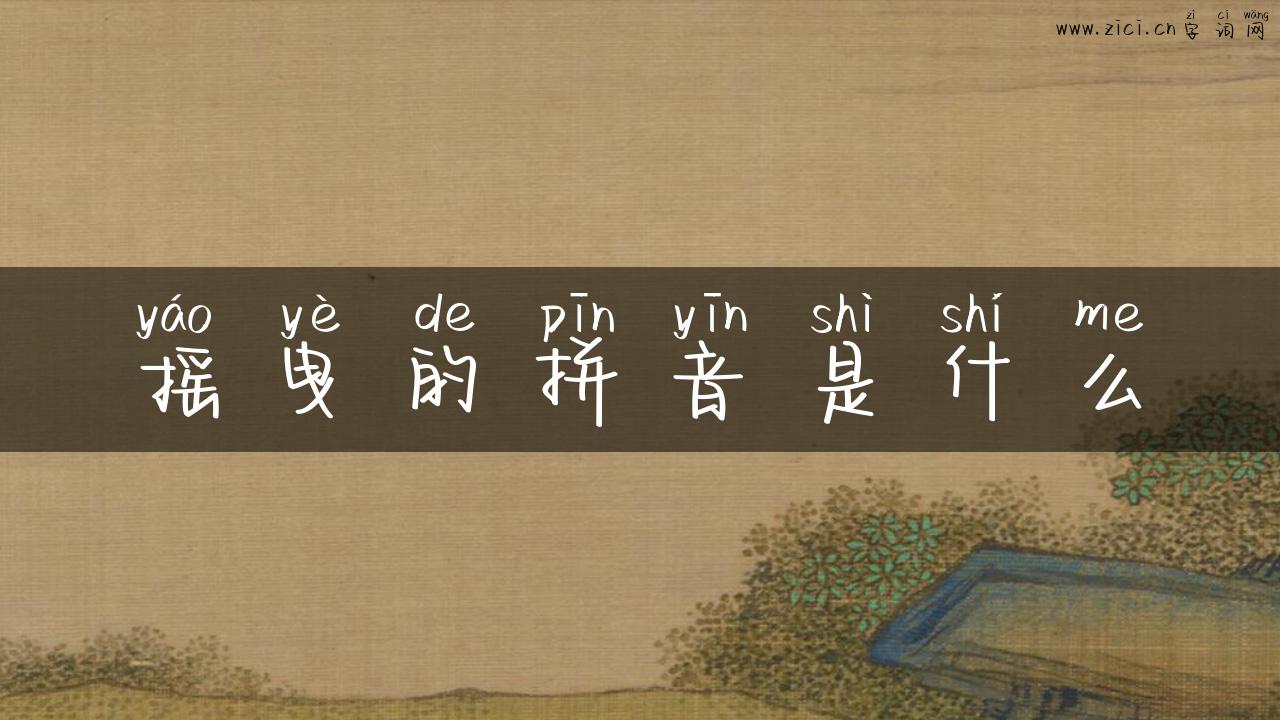 zì cí wǎng
www.zici.cn 字词网
yáo yè de pīn yīn shì shí me
摇曳的拼音是什么